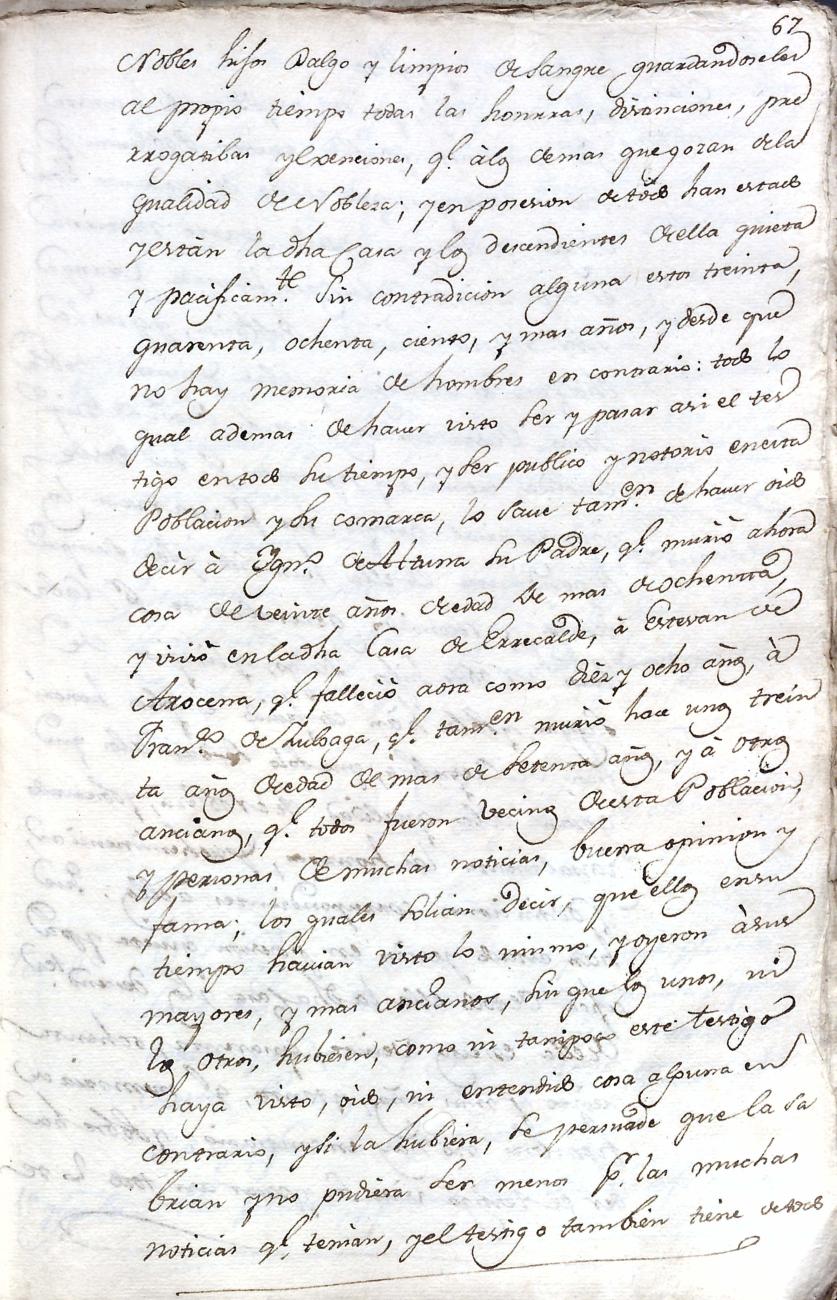 67
Nobles hijos Dalgo y limpios de sangre guardandoseles
al propio tiempo todas las honrras, distinciones, pre
rrogatibas y exenciones, q.e à los demas que gozan de la
qualidad de Nobleza; y en posesion de todo han estado
y estàn la dha Casa y los descendientes de ella quieta
y pacificam.te sin contradicion alguna estos treinta,
quarenta, ochenta, ciento, y mas años, y desde que
no hay memoria de hombres en contrario: todo lo
qual ademas de haver visto ser y pasar asi el tes
tigo en todo su tiempo, y ser publico y notorio en esta
Poblacion y su comarca, lo save tam.en de haver oido
decir à Ygn.o de Altuna su Padre, q.e muriò ahora
cosa de veinte años de edad de mas de ochenta,
y viviò en la dha Casa de Errecalde, à Estevan de
Arocena, q.e falleciò aora como diez y ocho años, à
Fran.co de Zuloaga, q.e tam.en muriò hace unos trein
ta años de edad de mas de setenta años, y à otros
ancianos, q.e todos fueron vecinos de esta Poblacion,
y personas de muchas noticias, buena opinion y
fama; los quales solian decir, que ellos en su
tiempo havian visto lo mismo, y oyeron à sus
mayores, y mas ancianos, sin que los unos, ni
los otros, hubiesen, como ni tampoco este testigo
haya visto, oido, ni entendido cosa alguna en
contrario, y si la hubiera, se persuade que la sa
brian y no pudiera ser menos p.r las muchas
noticias q.e tenian, y el testigo tambien tiene de todo